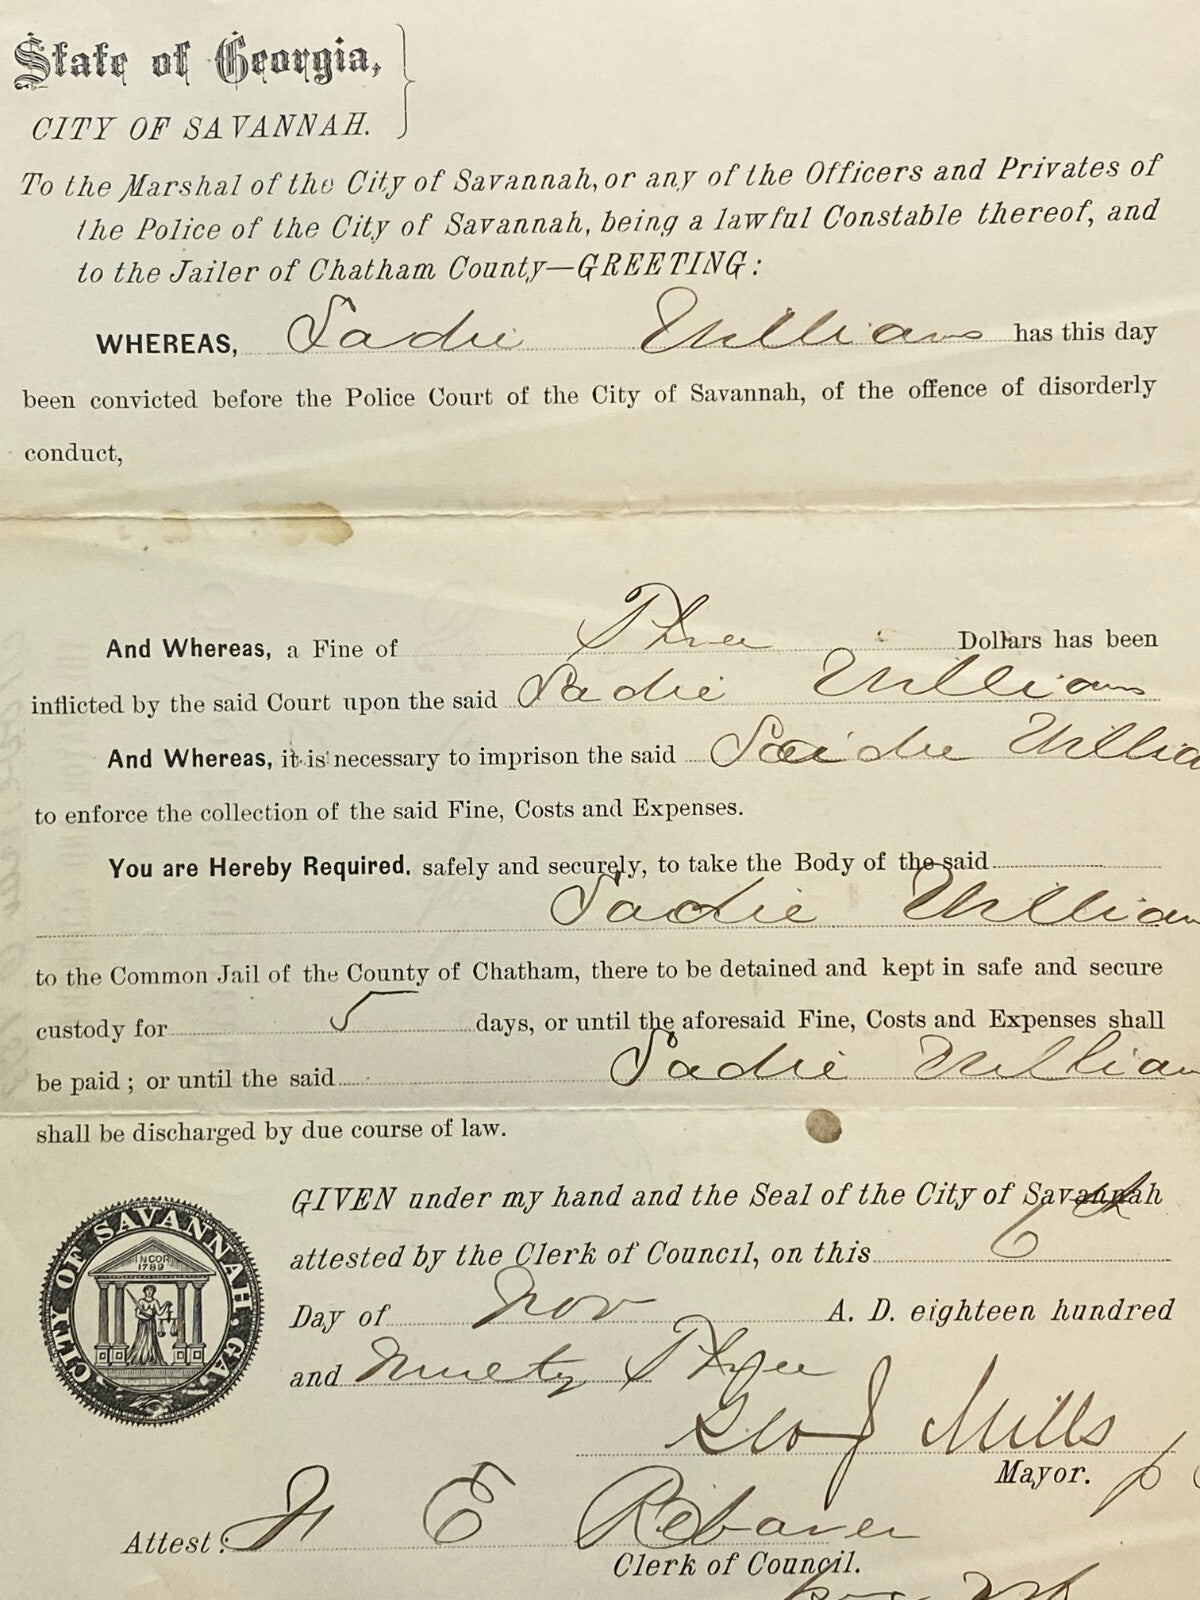 State of Georgia,
CITY OF SAVANNAH.
To the Marshal of the City of Savannah, or any of the Officers and Privates of
the Police of the City of Savannah, being a lawful Constable thereof, and
to the Jailer of Chatham County—GREETING:
WHEREAS, Sadie Williams has this day
been convicted before the Police Court of the City of Savannah, of the offence of disorderly
conduct,
And Whereas, a Fine of Three Dollars has been
inflicted by the said Court upon the said Sadie Williams
And Whereas, it is necessary to imprison the said Saidie Willia
to enforce the collection of the said Fine, Costs and Expenses.
You are Hereby Required, safely and securely, to take the Body of the said
Sadie William
to the Common Jail of the County of Chatham, there to be detained and kept in safe and secure
custody for 5 days, or until the aforesaid Fine, Costs and Expenses shall
be paid; or until the said Sadie William
shall be discharged by due course of law.
GIVEN under my hand and the Seal of the City of Savannah
attested by the Clerk of Council, on this 6th
Day of Nov A. D. eighteen hundred
and Ninety Three
CITY OF SAVANNAH. GA.
INCOR
1789
Geo J Mills
Mayor.
Attest: F E Rebarer
Clerk of Council.